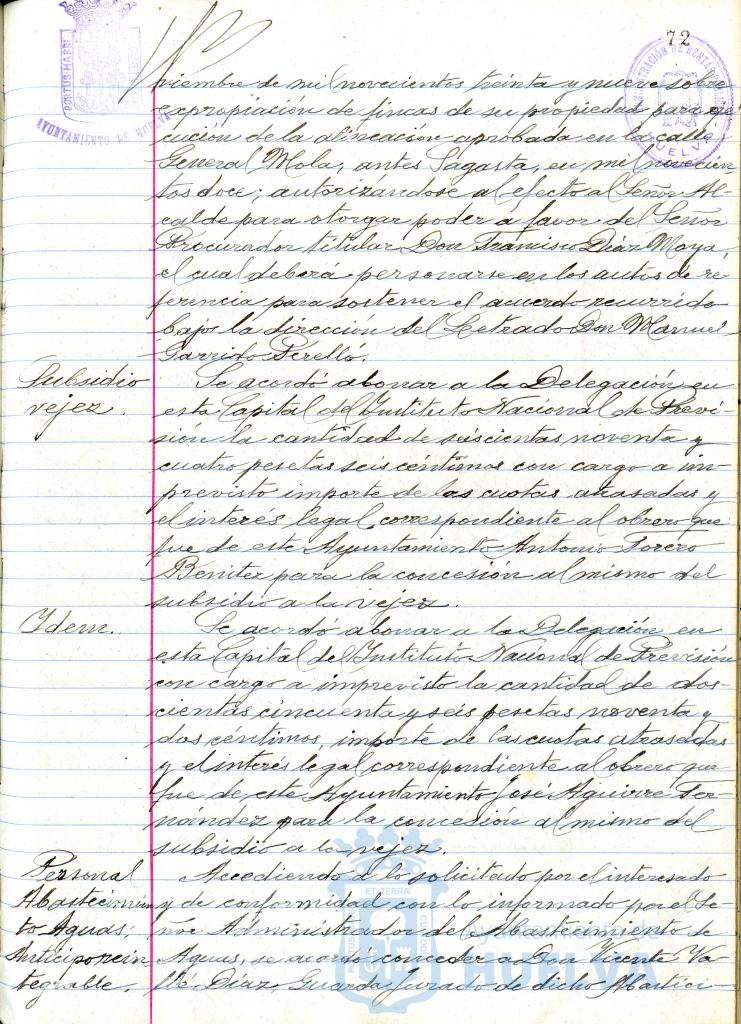 72
PORTUS MARIS
AYUNTAMIENTO DE HUELVA
HUELVA
viembre de mil novecientos treinta y nueve sobre
expropiación de fincas de su propiedad para eje
cución de la alineación aprobada en la calle
General Mola, antes Sagasta, en mil novecien
tos doce; autorizandose al efecto al Señor Al-
calde para otorgar poder a favor del Señor
Procurador titular Don Francisco Díaz Moya,
el cual deberá personarse en los autos de re-
ferencia para sostener el acuerdo recurrido
bajo la dirección del Letrado Don Manuel
Garrido Perelló.
Subsidio
vejez.
Se acordó abonar a la Delegación en
esta Capital del Instituto Nacional de Previ-
sión la cantidad de seiscientas noventa y
cuatro pesetas seis céntimos con cargo a im-
previsto importe de las cuotas atrasadas y
el interés legal correspondiente al obrero que
fue de este Ayuntamiento Antonio Forero
Benitez para la concesión al mismo del
subsidio a la vejez.
Idem.
Se acordó abonar a la Delegación en
esta Capital del Instituto Nacional de Previsión
con cargo a imprevisto la cantidad de dos-
cientas cincuenta y seis pesetas noventa y
dos centimos, importe de las cuotas atrasadas
y el interés legal correspondiente al obrero que
fue de este Ayuntamiento José Aguirre Fer-
nández para la concesión al mismo del
subsidio a la vejez.
Personal
Abastecimien
to Aguas;
Anticipo rein
tegrable.
Accediendo a lo solicitado por el interesado
y de conformidad con lo informado por el Se-
ñor Administrador del Abastecimiento de
Aguas, se acordó conceder a Don Vicente Va-
llé Díaz, Guarda Jurado de dicho Abasteci-
ET TERRÆ
PORTUS MARIS
CUSTODIA
Ayuntamiento de
HUELVA